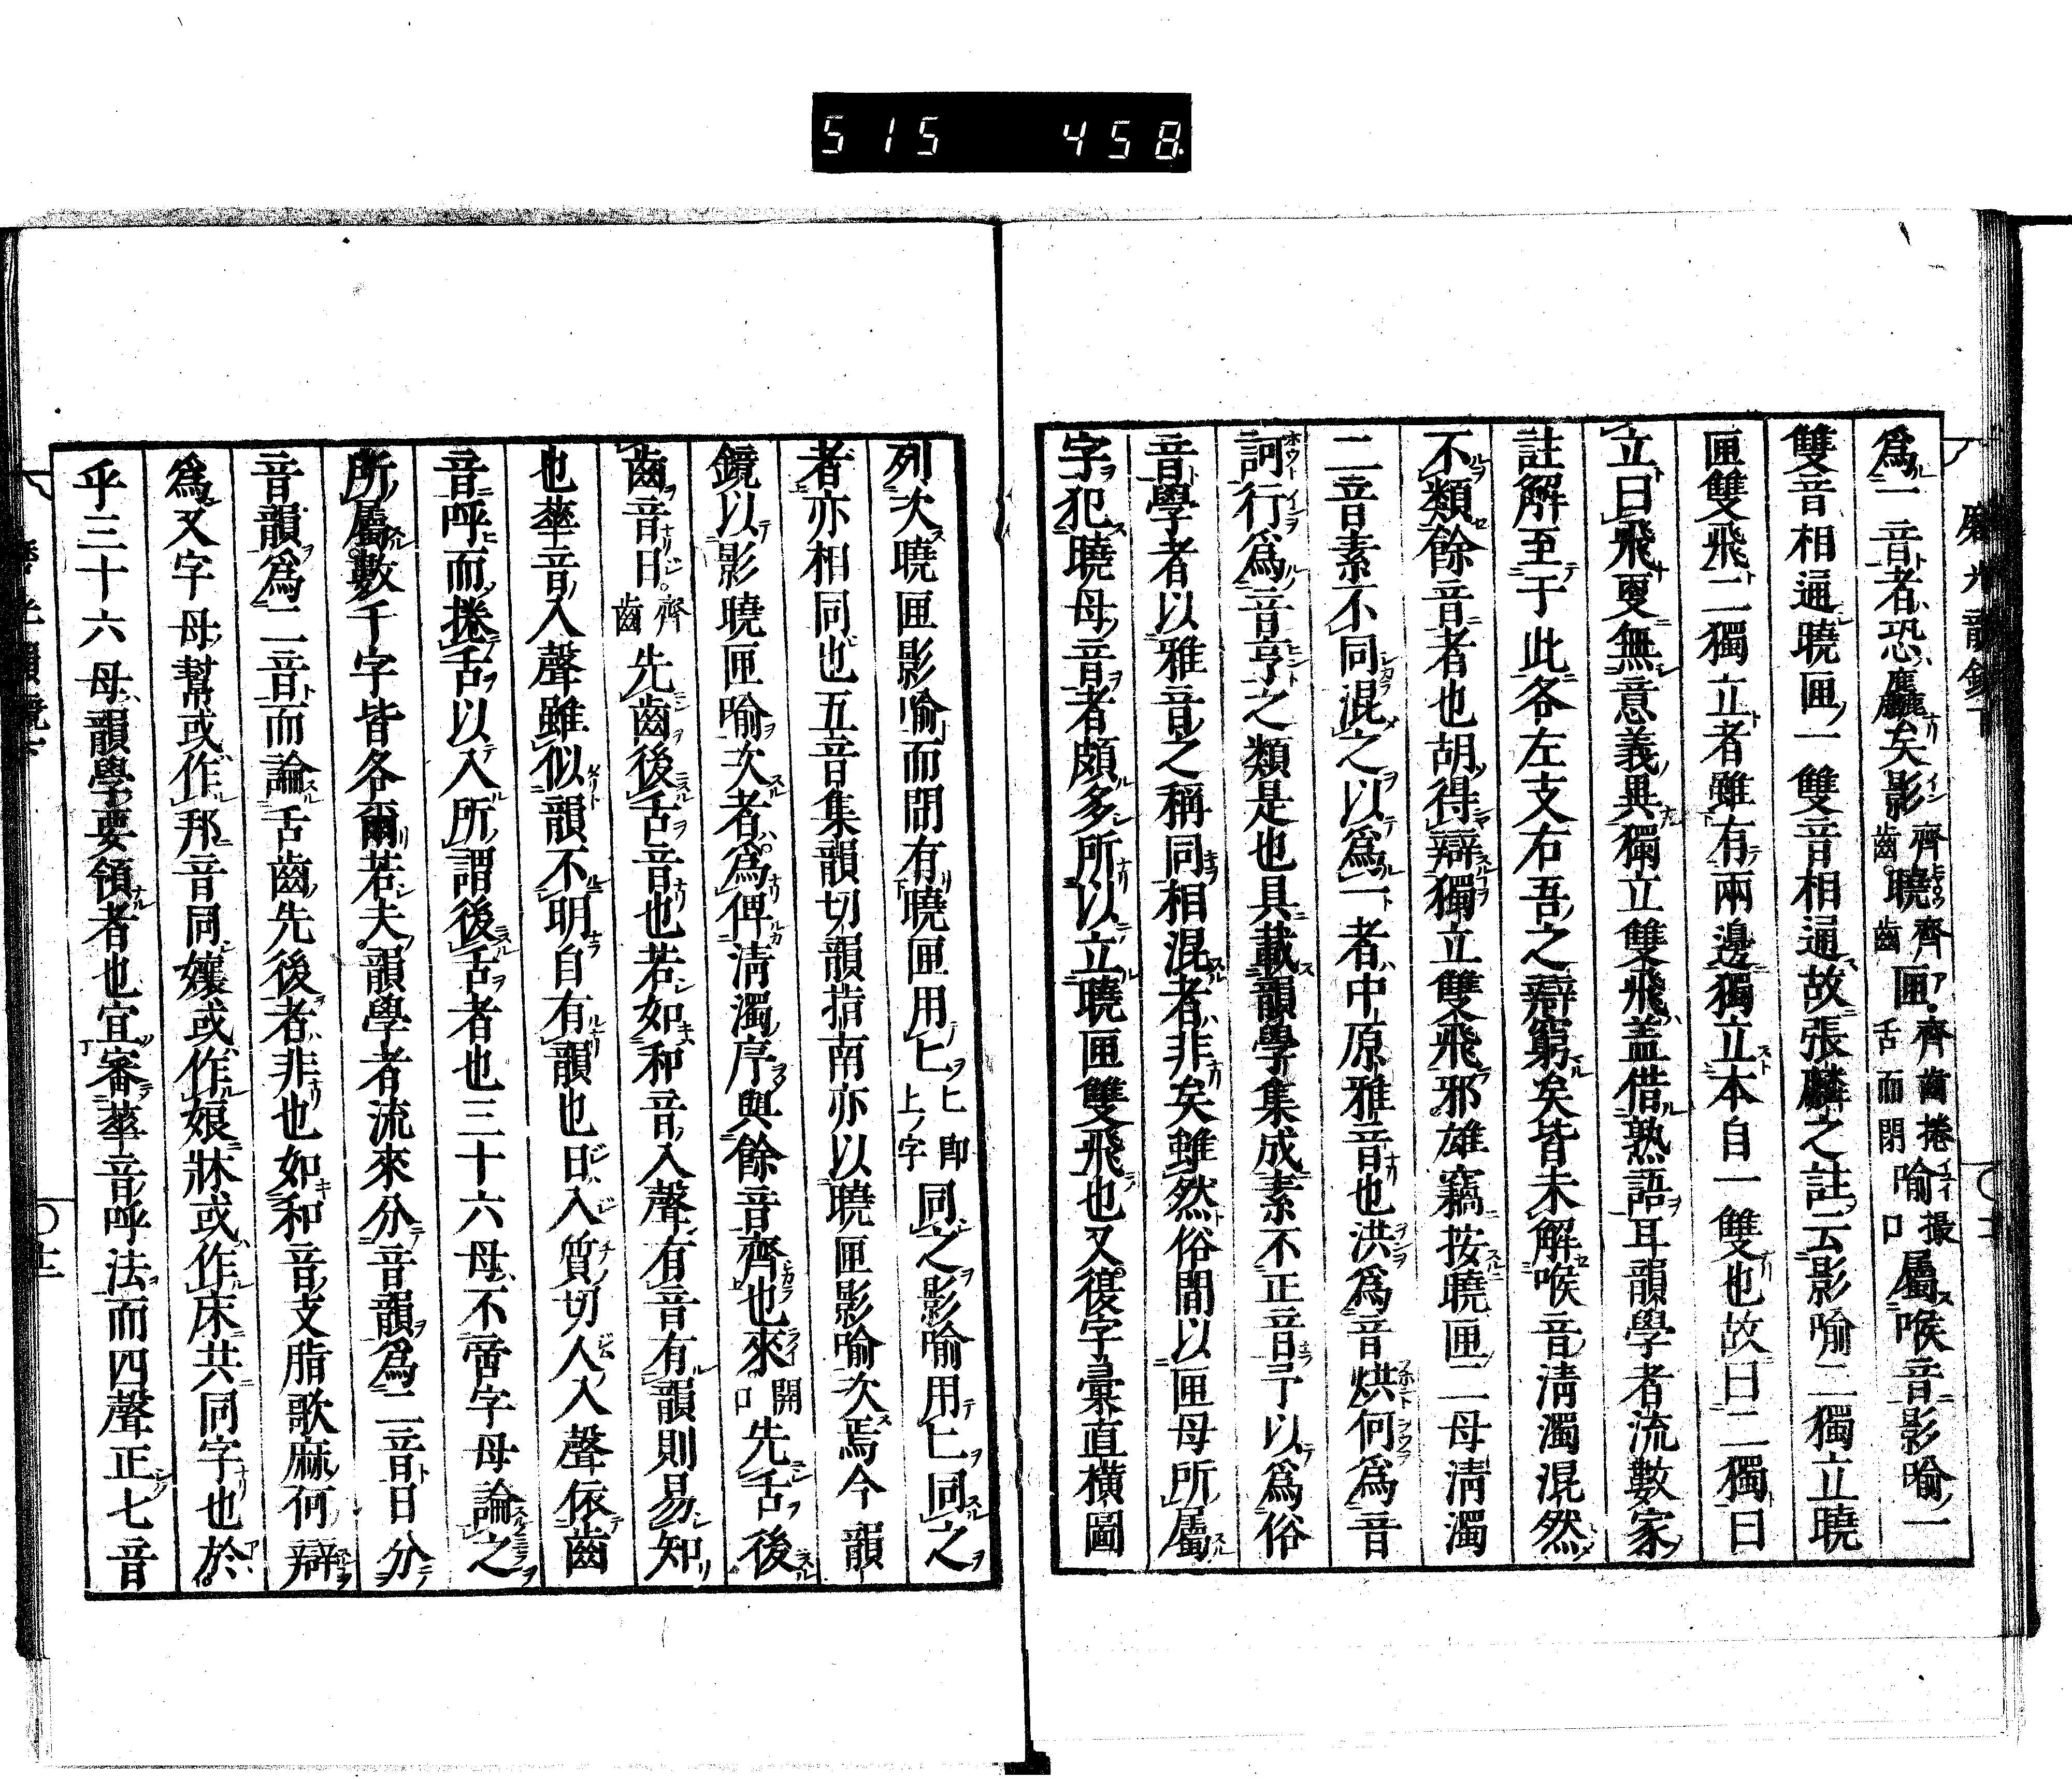 515 458
爲一音者恐麤矣影齊齒曉齊齒匣齊齒捲舌而閉喻撮口屬喉音影喻一
雙音相通曉匣一雙音相通故張麟之註云影喻二獨立曉
匣雙飛二獨立者雖有兩邊獨立本自一雙也故曰二獨曰
立曰飛更無意義異獨立雙飛盖借熟語耳韻學者流數家
註解至于此各左支右吾之辯窮矣皆未解喉音清濁混然
不類餘音者也胡得辯獨立雙飛邪雄竊按曉匣二母清濁
二音素不同混之以爲一者中原雅音也洪爲音烘何爲音
訶行爲音亨之類是也具載韻學集成素不正音了以爲俗
音學者以雅音之稱同相混者非矣雖然俗間以匣母所屬
字犯曉母音者頗多所以立曉匣雙飛也又復字彙直橫圖
列次曉匣影喻而間有曉匣用匕匕即上字同之影喻用匕同之
者亦相同也五音集韻切韻指南亦以曉匣影喻次焉今韻
鏡以影曉匣喻次者爲俾清濁序與餘音齊也來開口先舌後
齒音日齊齒先齒後舌音也若如和音入聲有音有韻則易知
也華音入聲雖似韻不明自有韻也日入質切人入聲依齒
音呼而捲舌以入所謂後舌者也三十六母不啻字母論之
所屬數千字皆各爾若夫韻學者流來分音韻爲二音日分
音韻爲二音而論舌齒先後者非也如和音支脂歌麻何辯
爲又字母幫或作邦音同孃或作娘牀或作床共同字也於
乎三十六母韻學要領者也宜審華音呼法而四聲正七音